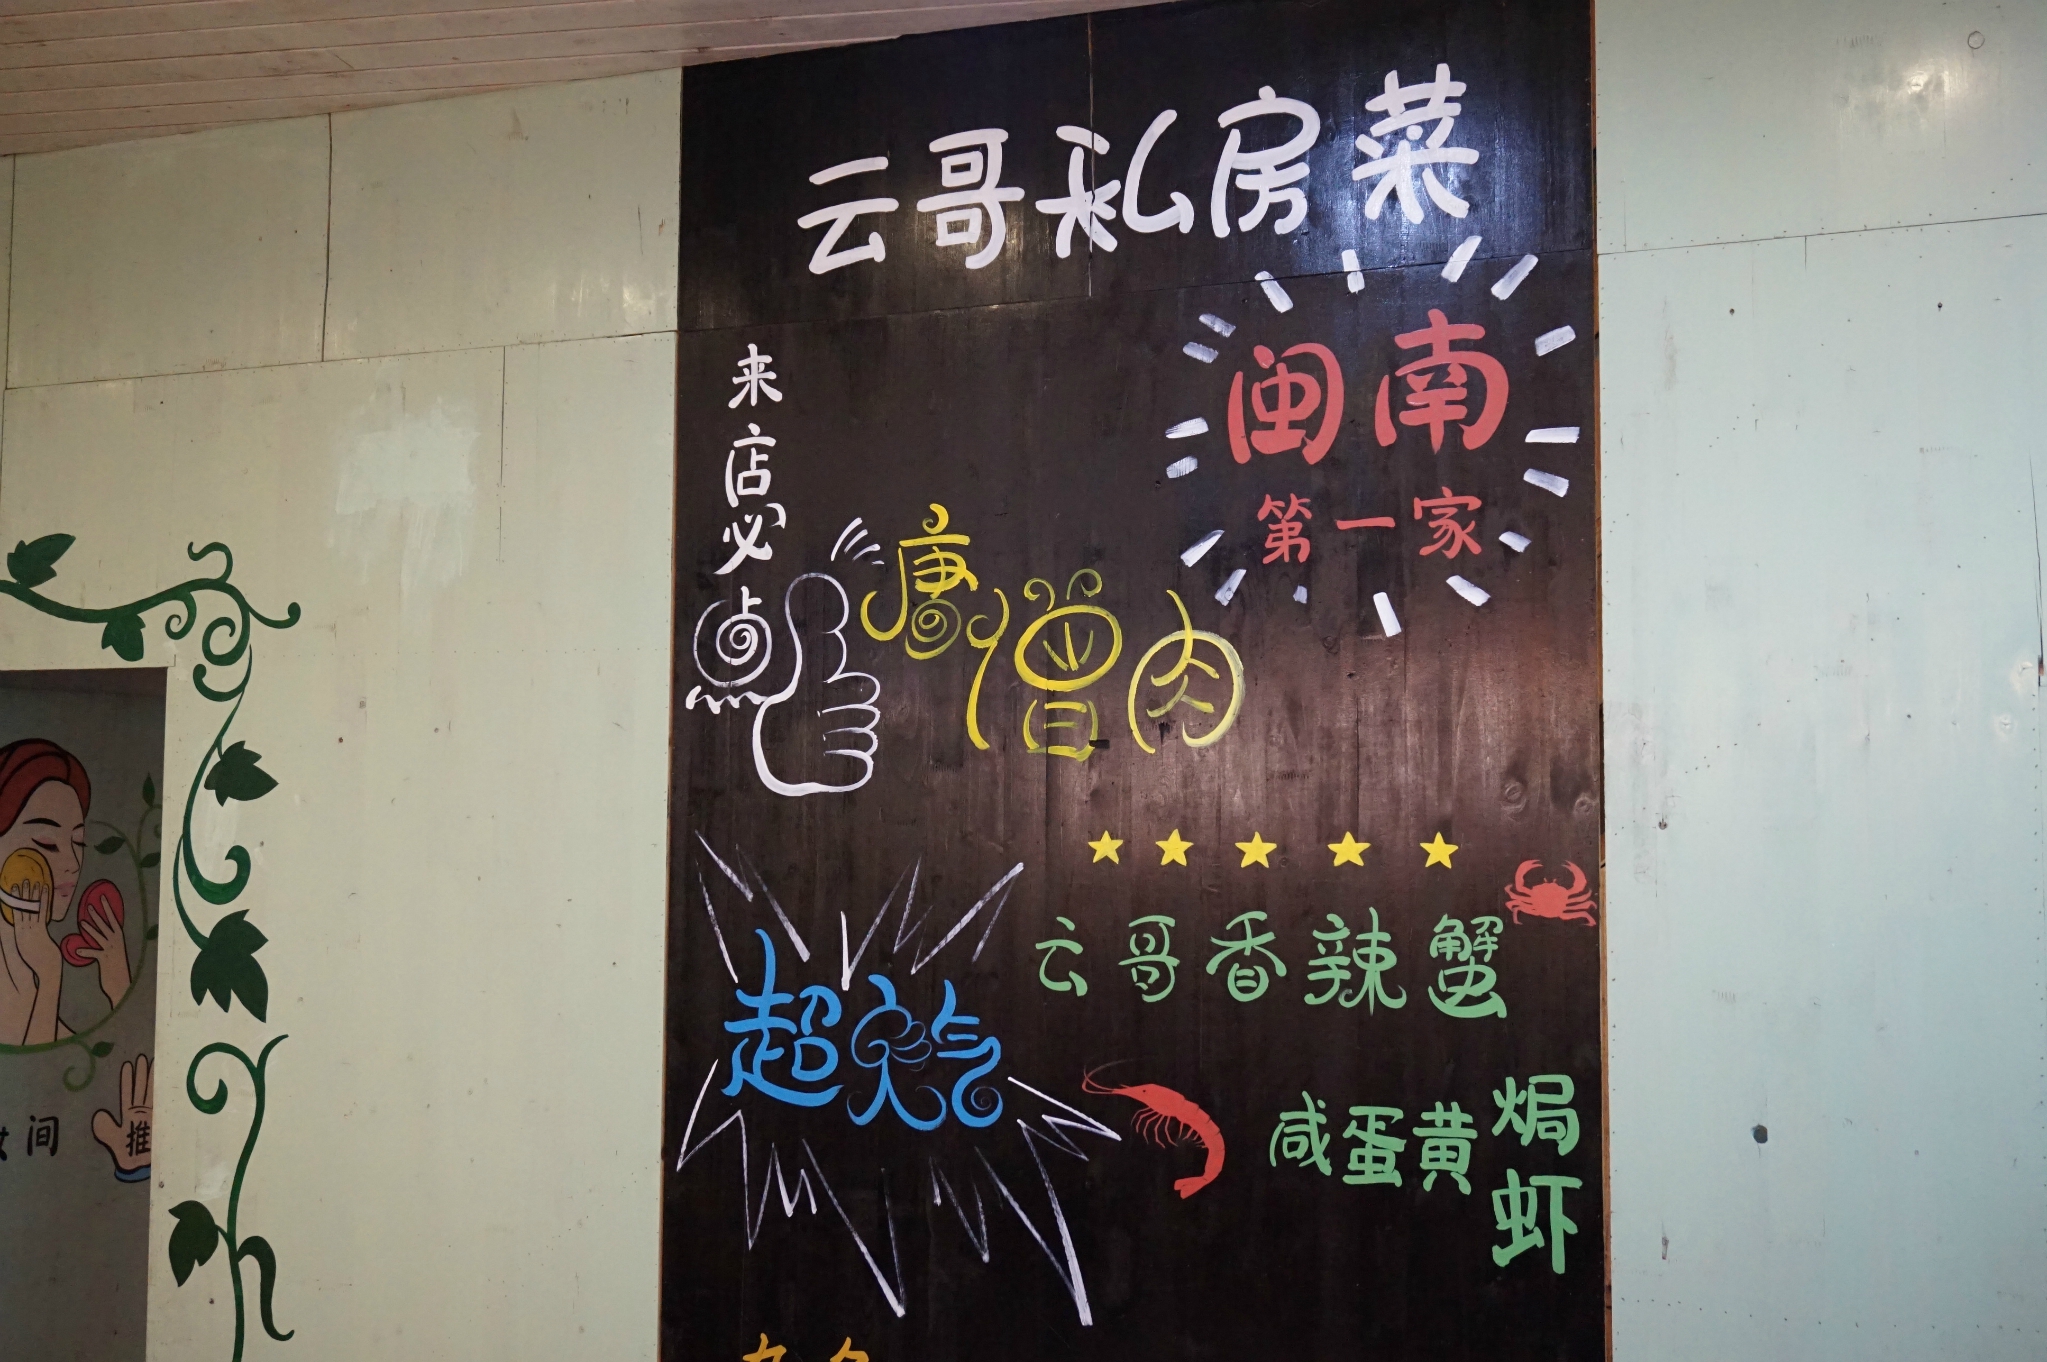 云哥私房菜
闽南
第一家
来店必点
唐僧肉
云哥香辣蟹
超人气
咸蛋黄焗虾
间
推